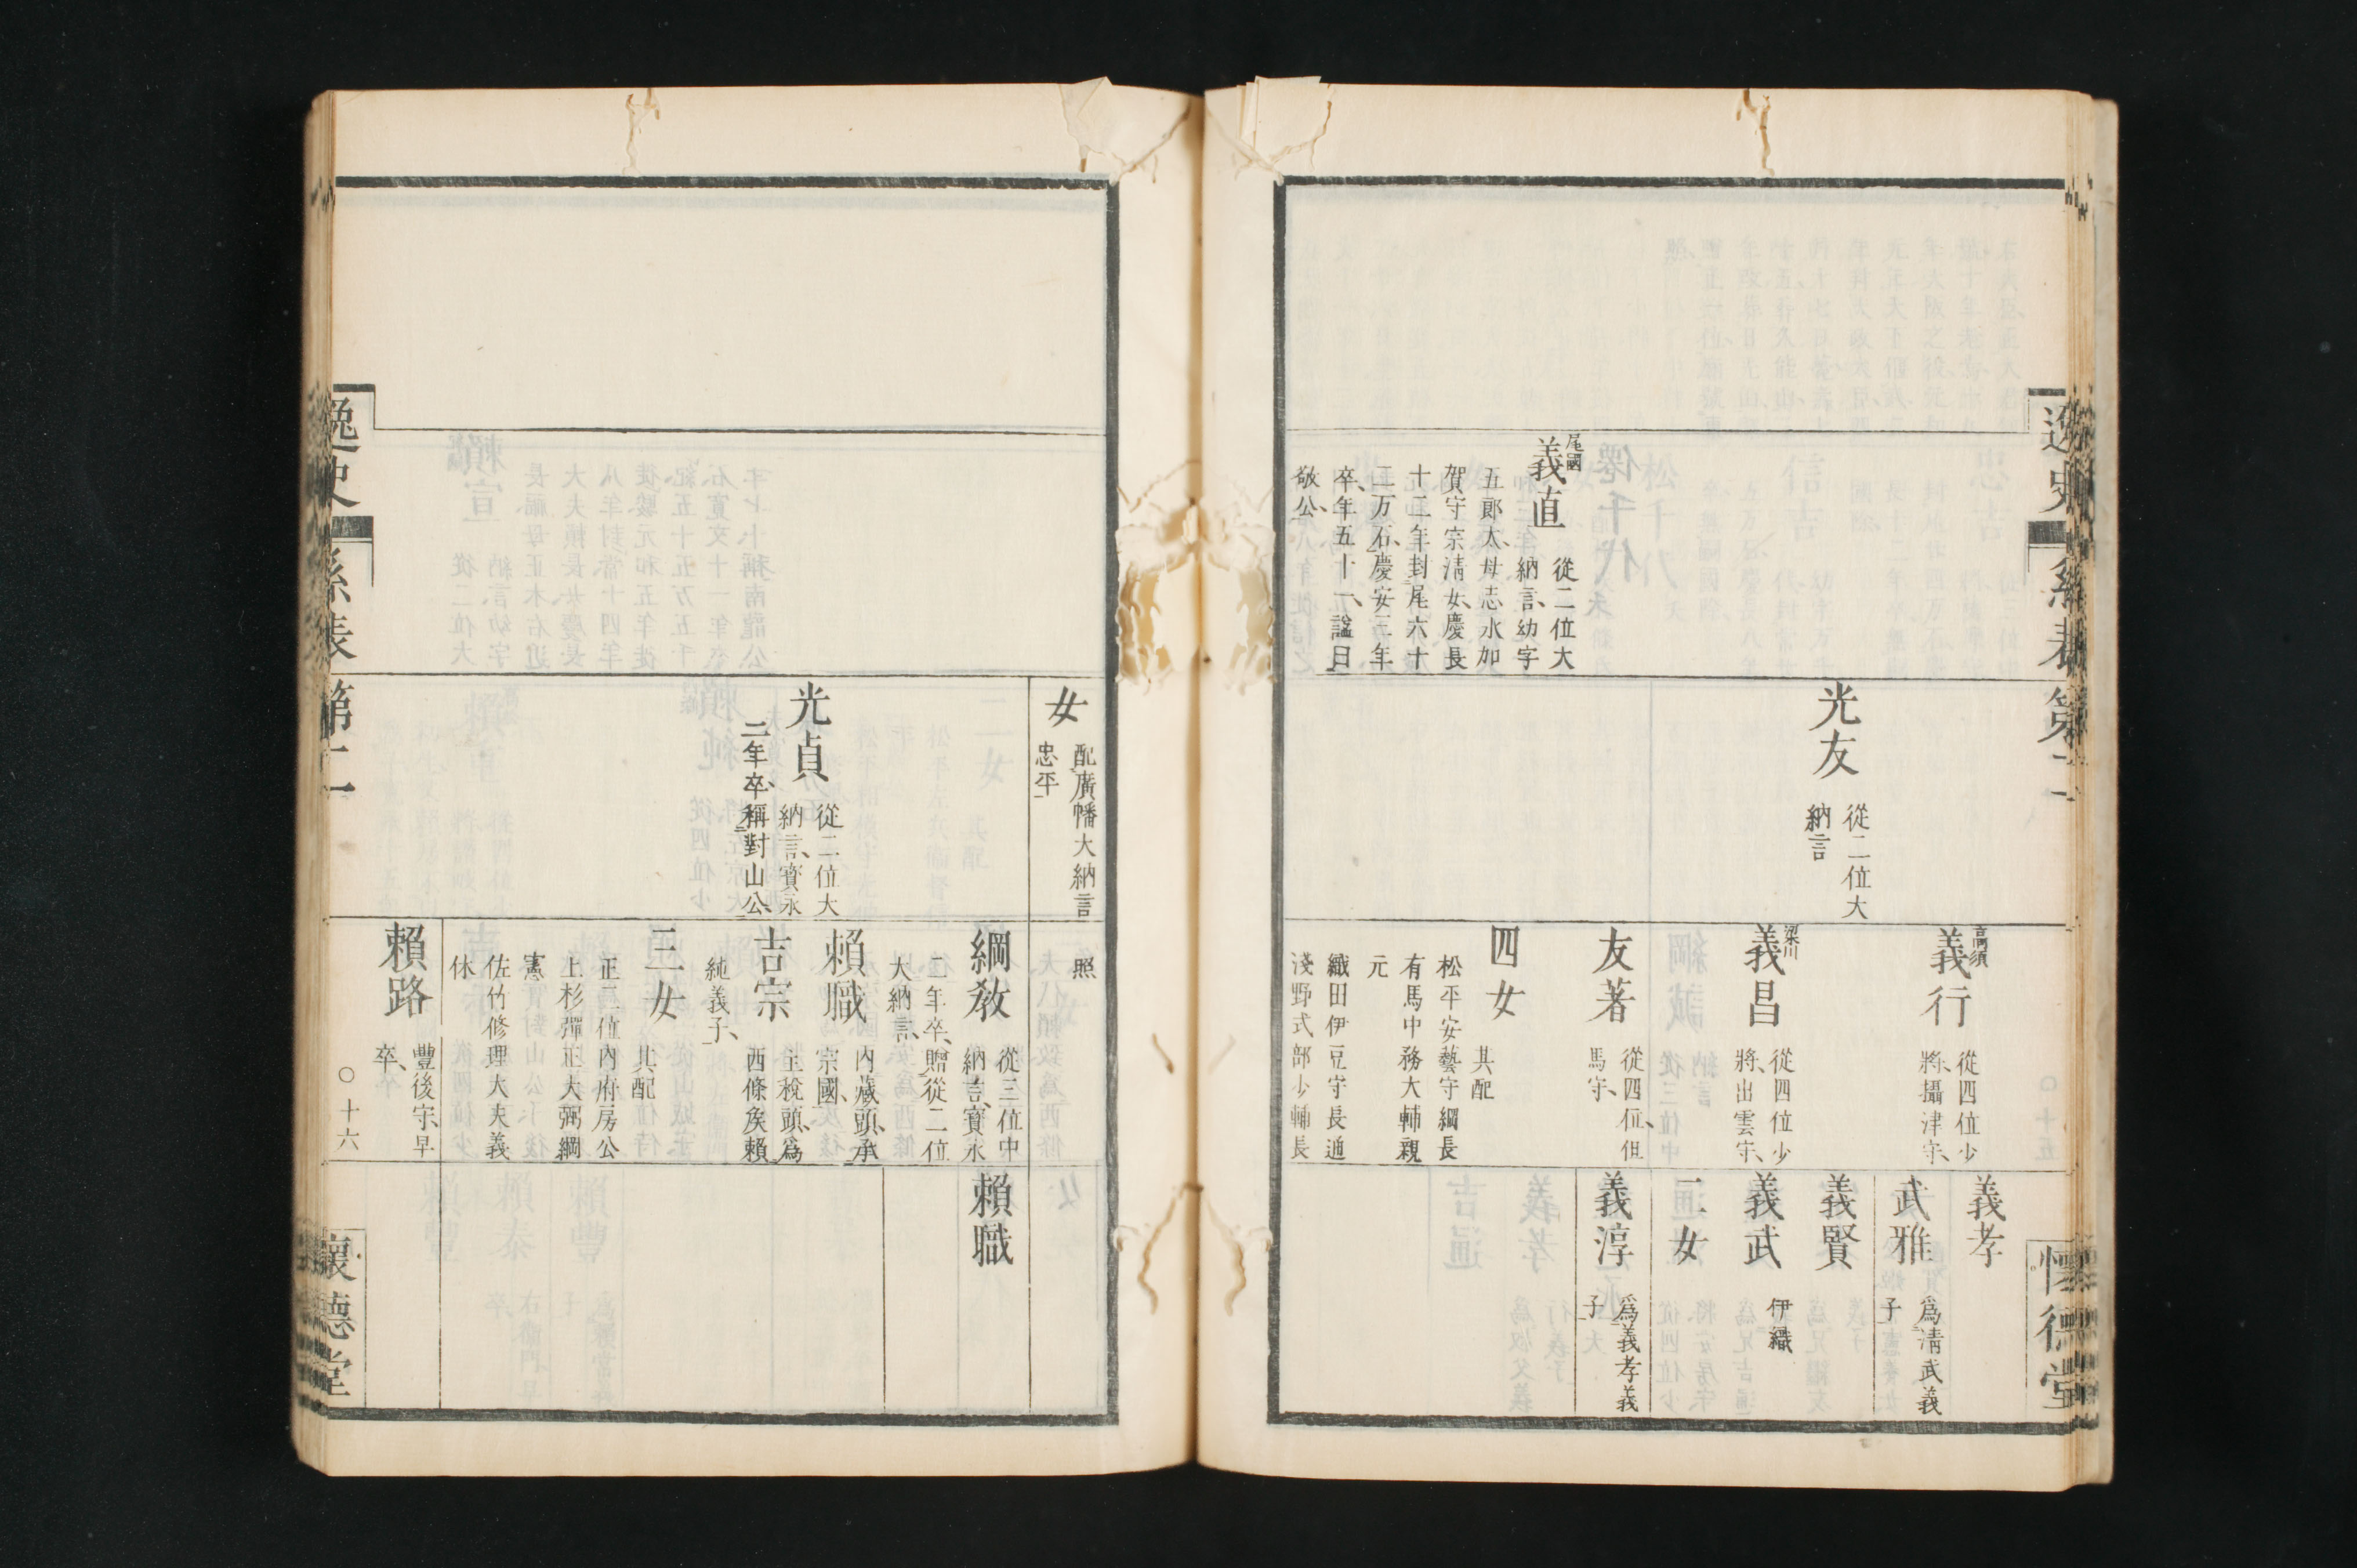 逸史
系表
第二
懷德堂
尾國
義直
從二位大
納言、幼字
五郎太、母志水加
賀守宗淸女、慶長
十二年封尾六十
二万石、慶安三年
卒、年五十一、謚曰
敬公、
光友
從二位大
納言
高須
義行
從四位少
將、攝津守、
梁川
義昌
從四位少
將、出雲守、
友著
從四位、但
馬守、
四女
其配
松平安藝守綱長
有馬中務大輔親
元
織田伊豆守長通
淺野式部少輔長
義孝
武雅
爲淸武義
子
義賢
義武
伊織
二女
義淳
爲義孝義
子
女
配廣幡大納言
忠平
光貞
從二位大
納言、寳永
二年卒、稱對山公、
照
綱敎
從三位中
納言、寳永
二年卒、贈從二位
大納言、
賴職
內藏頭、承
宗國、
吉宗
主稅頭、爲
西條矦賴
純義子、
三女
其配
正二位內府房公
上杉彈正大弼綱
憲
佐竹修理大夫義
休
賴路
豐後守、早
卒、
賴職
逸史
系表
第二
○十六
懷德堂